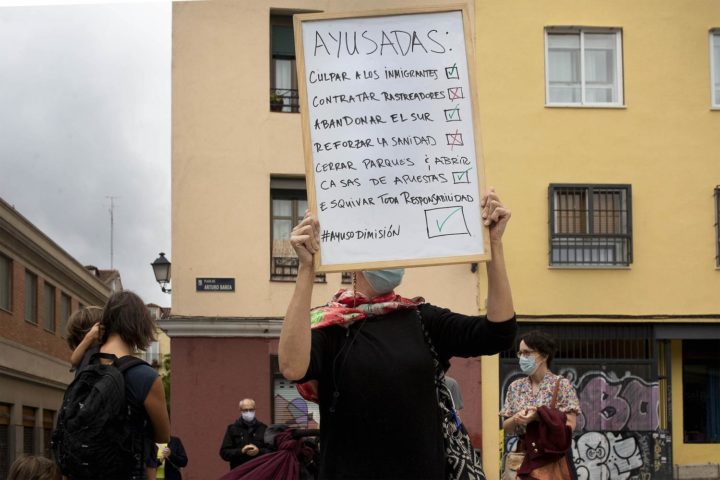 AYUSADAS:
CULPAR A LOS INMIGRANTES
CONTRATAR RASTREADORES
ABANDONAR EL SUR
REFORZAR LA SANIDAD
CERRAR PARQUES & ABRIR
CASAS DE APUESTAS
ESQUIVAR TODA RESPONSABILIDAD
#AYUSODIMISIÓN
PLAZA DE
ARTURO BAREA